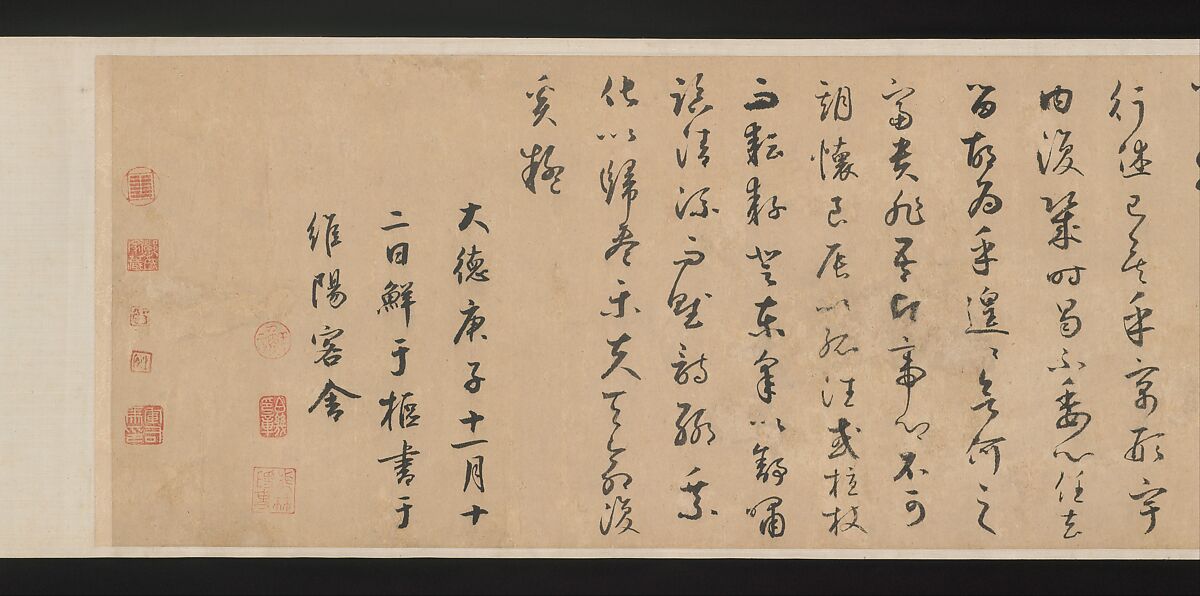 行休已矣乎寓形宇
内復幾時曷不委心任去
留胡為乎遑〻何之
富貴非吾願帝鄉不可
期懷良辰以孤往或植杖
而耘耔登東皋以舒嘯
臨清流而賦詩聊乘
化以歸盡樂夫天命復
奚疑
大德庚子十一月十
二日鮮于樞書于
維陽客舍